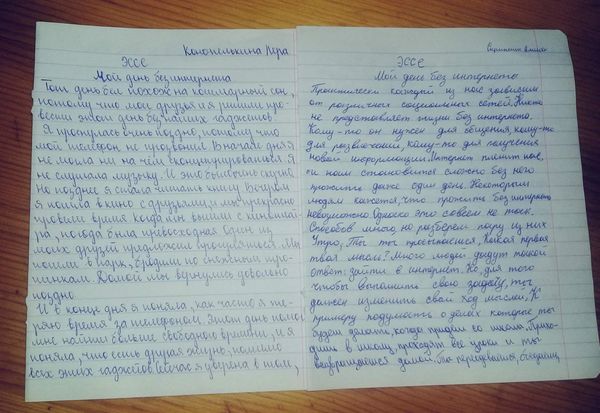 Конопелькина Лера
ЭССЕ
Мой день без интернета
Тот день был похож на кошмарный сон,
потому что мои друзья и я решили про-
вести этот день без наших гаджетов.
Я проснулась очень поздно, потому что
мой телефон не прозвонил. В начале дня я
не могла ни на чём сконцентрироваться. Я
не слушала музыку. И это было очень скучно.
Но позднее я стала читать книгу. Вечером
я пошла в кино с друзьями, и мы прекрасно
провели время. Когда мы вышли с кинотеат-
ра, погода была превосходная один из
моих друзей предложил прогуляться. Мы
пошли в парк, бродили по снежным тро-
пинкам. Домой мы вернулись довольно
поздно.
И в конце дня я поняла, как часто я те-
ряю время за телефоном. Этот день помог
мне найти больше свободного времени, и я
поняла, что есть другая жизнь, помимо
всех этих гаджетов. Сейчас я уверена в том,
ЭССЕ
Мой день без интернета
Практически каждый из нас зависим
от различных социальных сетей. Никто
не представляет жизни без интернета.
Кому-то он нужен для общения, кому-то
для развлечения, кому-то для получения
новой информации. Интернет пленит нас,
и нам становится сложно без него
прожить даже один день. Некоторым
людям кажется, что прожить без интернета
невозможно. Однако это совсем не так.
Способов много, но разберём пару из них
Утро, ты просыпаешься, какая первая
твоя мысль? Много людей дадут такой
ответ: зайти в интернет. Но, для того
чтобы выполнить свою задачу, ты
должен изменить свой ход мыслей. К
примеру подумать о делах которые ты
будешь делать, когда придёшь со школы. Прихо-
дишь в школу, проходят все уроки и ты
возвращаешься домой. Ты переоделся,